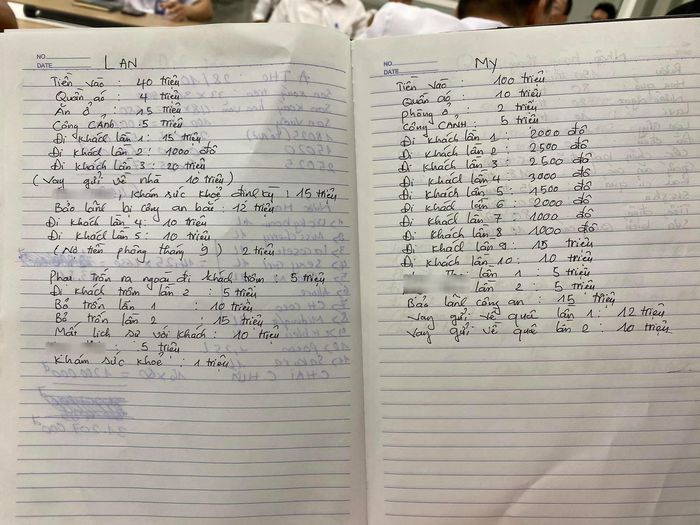 NO.
DATE.
LAN
Tiền vào : 40 triệu
Quần áo : 4 triệu
Ăn ở : 15 triệu
Công CẢNH : 5 triệu
Đi khách lần 1 : 15 triệu
Đi khách lần 2 : 1000 đô
Đi khách lần 3 : 20 triệu
( Vay gửi về nhà 10 triệu )
, Khám sức khoẻ định kỳ : 15 triệu
Bảo lãnh bị công an bắt : 12 triệu
Đi khách lần 4 : 10 triệu
Đi khách lần 5 : 10 triệu
( Nợ tiền phòng tháng 9 ) 2 triệu
Phạt trốn ra ngoài đi khách trộm : 5 triệu
Đi khách trộm lần 2 : 5 triệu
Bỏ trốn lần 1 : 10 triệu
Bỏ trốn lần 2 : 15 triệu
Mất lịch sự với khách : 10 triệu
: 5 triệu
Khám sức khoẻ : 1 triệu
NO.
DATE.
MY
Tiền vào : 100 triệu
Quần áo : 10 triệu
phòng ở : 2 triệu
Công CẢNH : 5 triệu
Đi khách lần 1 : 2000 đô
Đi khách lần 2 : 2500 đô
Đi khách lần 3 : 2500 đô
Đi khách lần 4 : 3000 đô
Đi khách lần 5 : 1500 đô
Đi khách lần 6 : 2000 đô
Đi khách lần 7 : 1000 đô
Đi khách lần 8 : 1000 đô
Đi khách lần 9 : 15 triệu
Đi khách lần 10 : 10 triệu
lần 1 : 5 triệu
lần 2 : 5 triệu
Bảo lãnh công an : 15 triệu
Vay gửi về quê lần 1 : 12 triệu
Vay gửi về quê lần 2 : 10 triệu